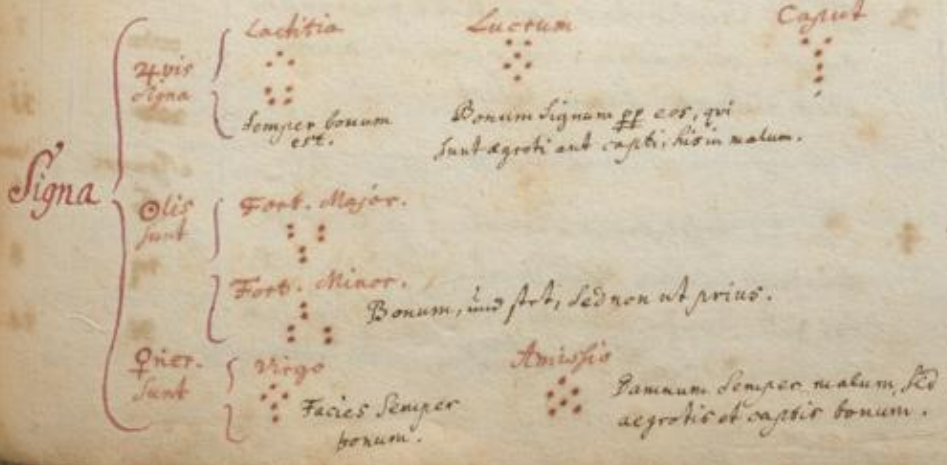 Signa
♃vis
Signa
Laetitia
Semper bonum
est.
Lucrum
Bonum Signum eos, qui
sunt aegroti aut capti, his in malum.
Caput
☉lis
sunt
Fort. Major.
Fort. Minor.
Bonum, sed non ut prius.
♀ner.
sunt
Virgo
Facies Semper
bonum.
Amissio
Damnum Semper malum, sed
aegrotis et captis bonum.